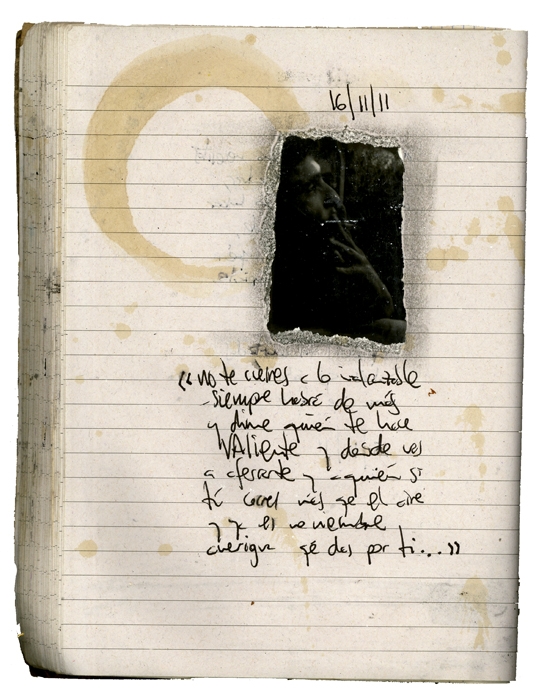 16/11/11
"no te cierres a lo inalcanzable
siempre habrá de más
y dime quién te hace
VALiente y dónde vas
a aferrarte y a quién si
tú corres más qe el aire
y ya es noviembre
averigua qé das por ti..."